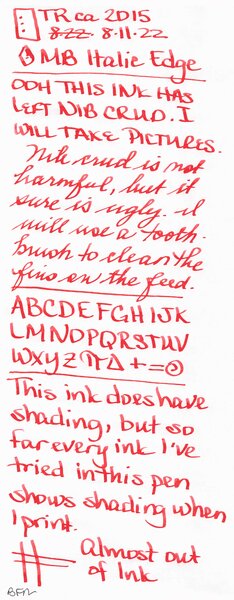 TR ca 2015
8-22 8-11-22
MB Italic Edge
OOH THIS INK HAS
LEFT NIB CRUD. I
WILL TAKE PICTURES.
Nib crud is not
harmful, but it
sure is ugly. I
will use a tooth-
brush to clean the
fins on the feed.
ABCDEFGHIJK
LMNOPQRSTUV
WXYZ π Δ + =
This ink does have
shading, but so
far every ink I've
tried in this pen
shows shading when
I print.
# Almost out
of Ink